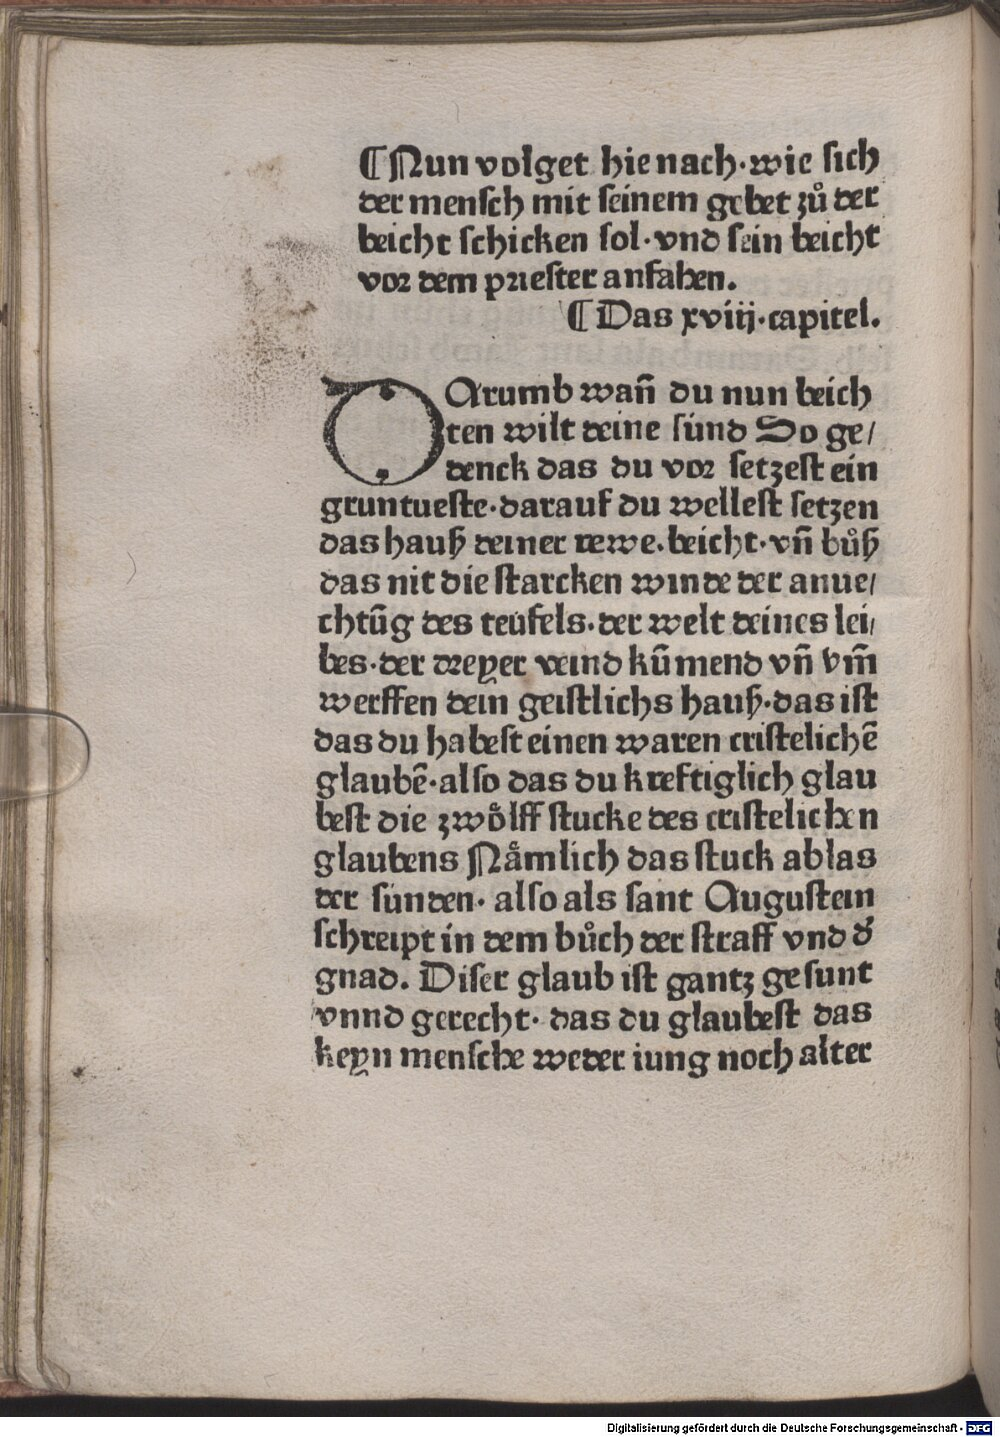 ¶Nun volget hie nach·wie sich
der mensch mit seinem gebet zů der
beicht schicken sol·vnd sein beicht
vor dem priester anfahen.
¶Das xviij·capitel.
DArumb wañ du nun beich
ten wilt deine sünd So ge/
denck das du vor setzest ein
gruntueste·darauf du wellest setzen
das hauß deiner rewe.beicht·vñ bůß
das nit die starcken winde der anue/
chtũg des teüfels.der welt deines lei/
bes·der dreyer veind kũmend vñ vm̃
werffen dein geistlichs hauß·das ist
das du habest einen waren cristelichẽ
glaubẽ·also das du kreftiglich glau
best die zwoͤlff stucke des cristelichen
glaubens Nåmlich das stuck ablas
der sünden· also als sant Augustein
schreipt in dem bůch der straff vnd d̕
gnad. Diser glaub ist gantz gesunt
vnnd gerecht· das du glaubest das
keyn mensche weder iung noch alter
Digitalisierung gefördert durch die Deutsche Forschungsgemeinschaft - DFG